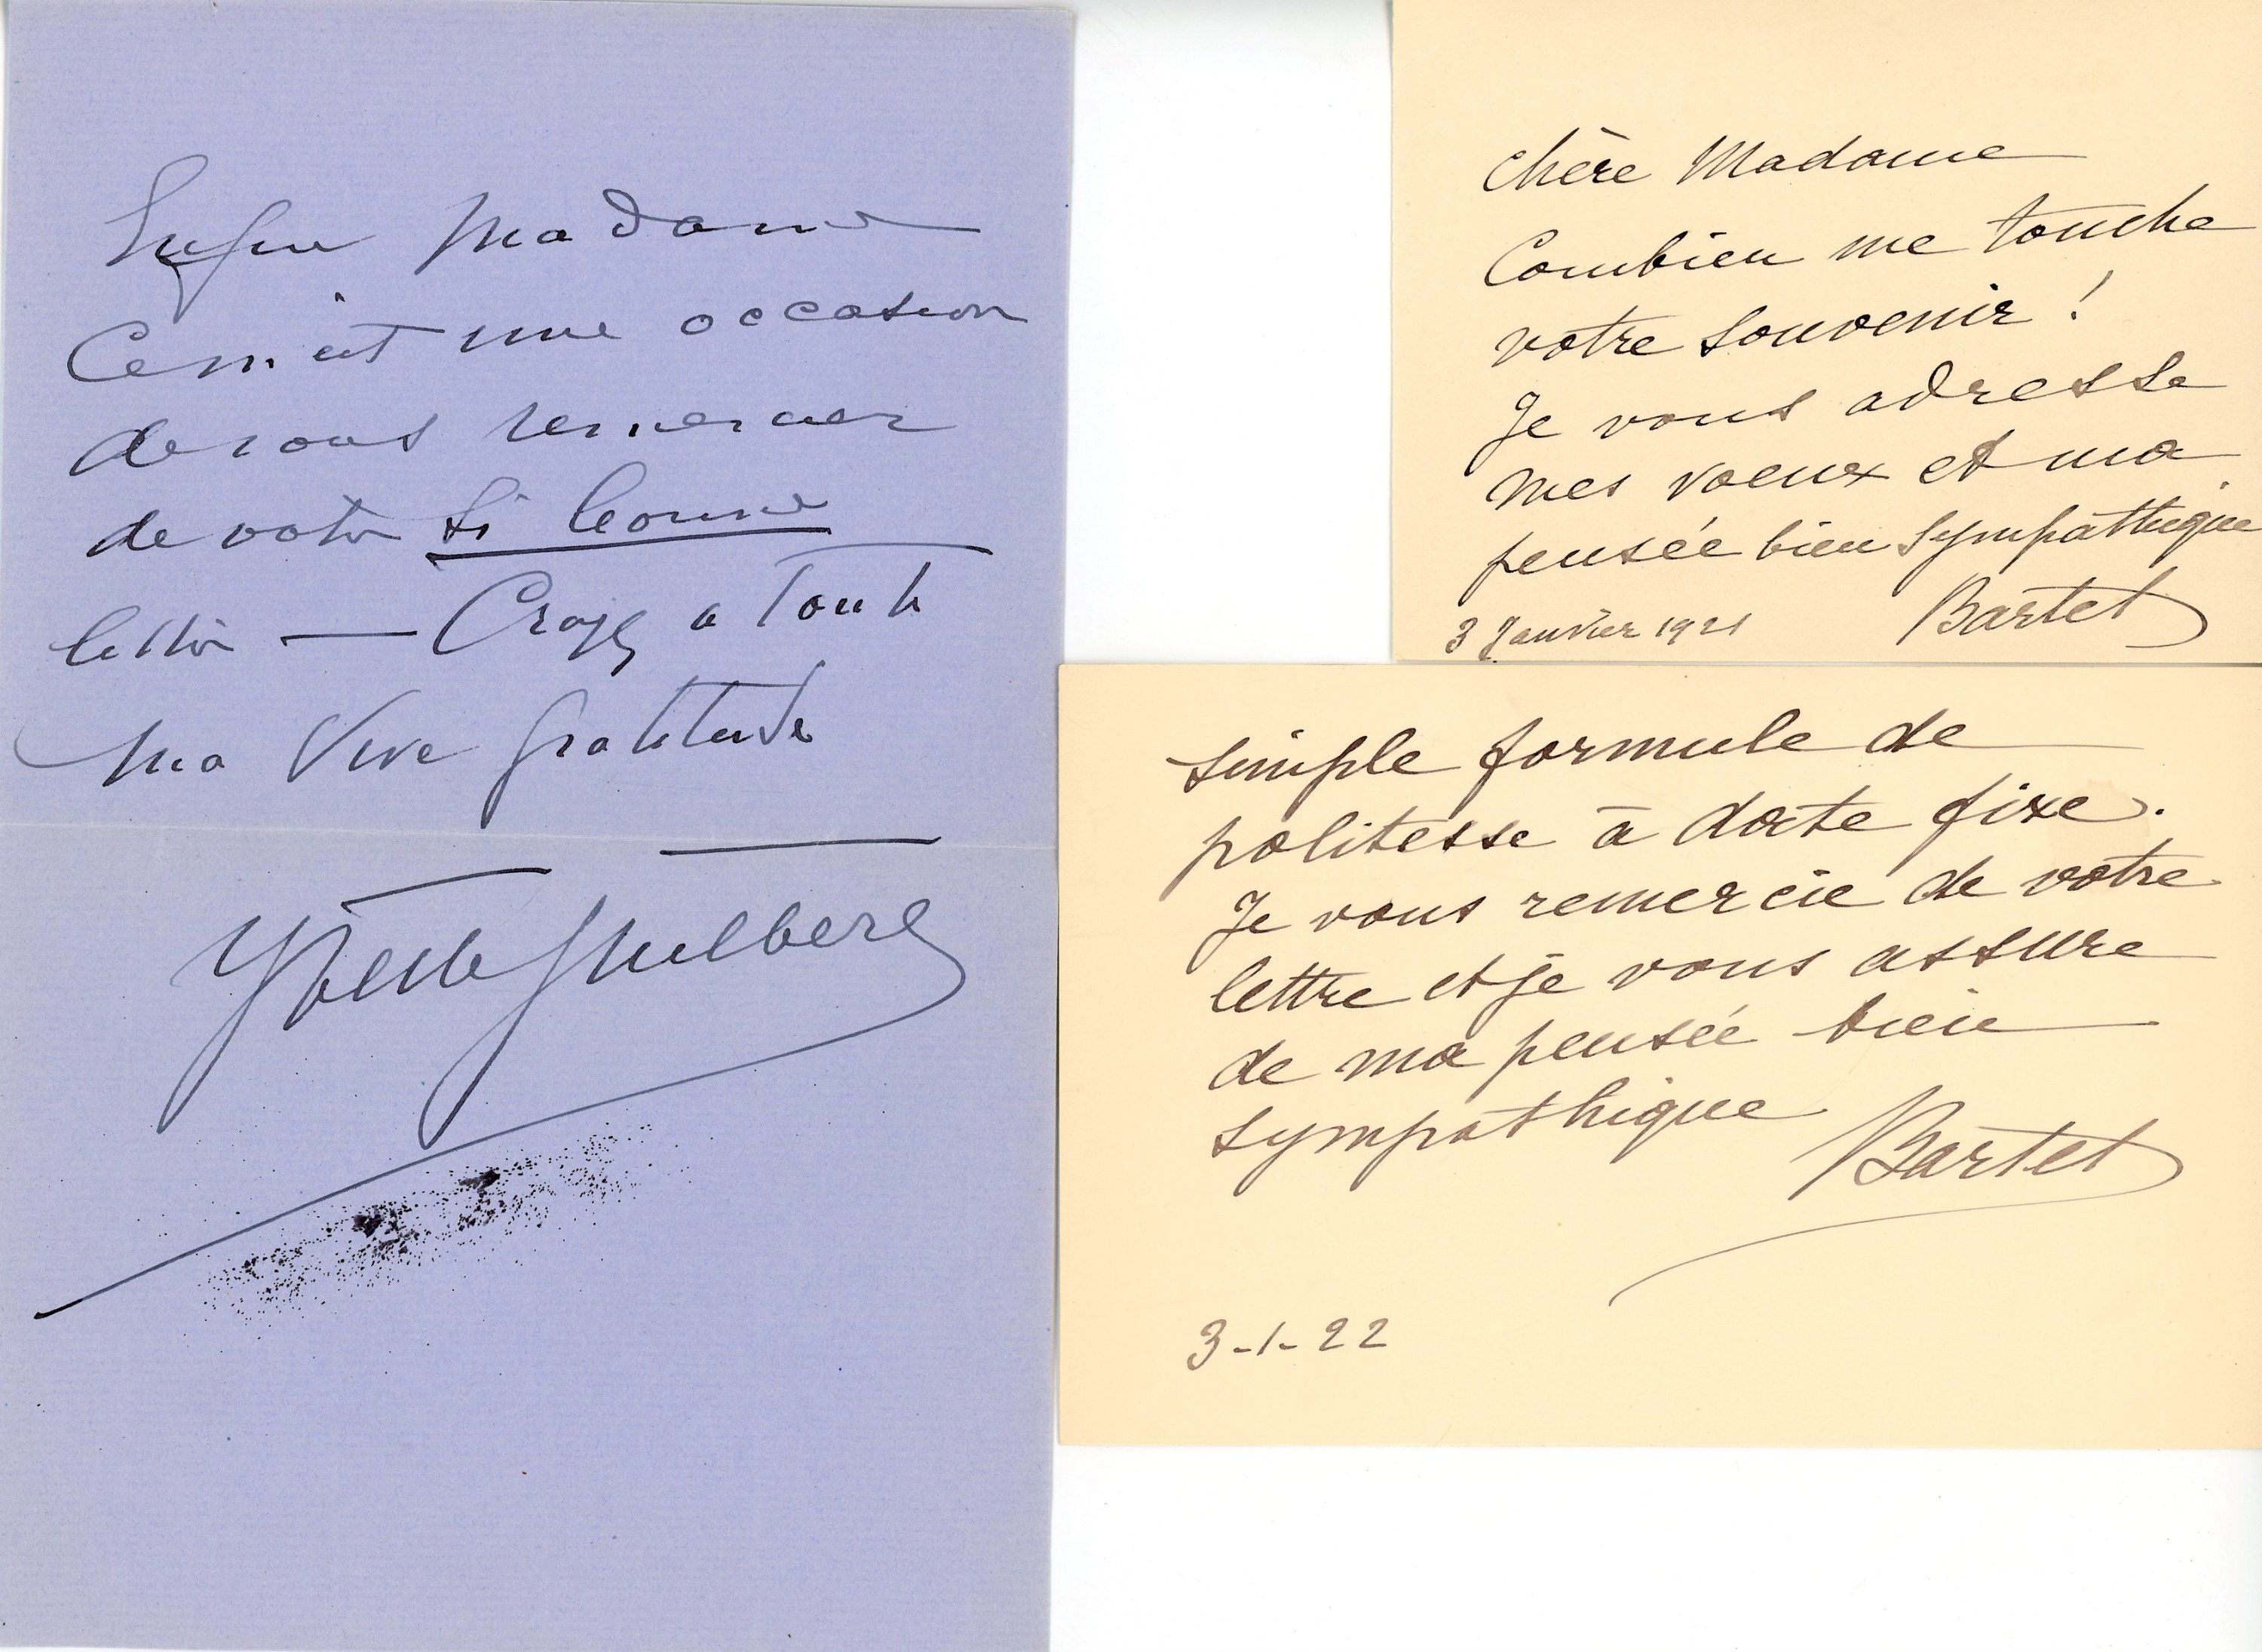 Enfin Madame
Ce m'est une occasion
de vous remercier
de votre si bonne
lettre — Croyez a toute
ma Vive gratitude
Yvette Guilbert
Chère Madame
Combien me touche
votre souvenir !
Je vous adresse
mes voeux et ma
pensée bien sympathique
3 Janvier 1921 Bartet
simple formule de
politesse à date fixe.
Je vous remercie de votre
lettre et je vous assure
de ma pensée bien
sympathique
Bartet
3-1-22